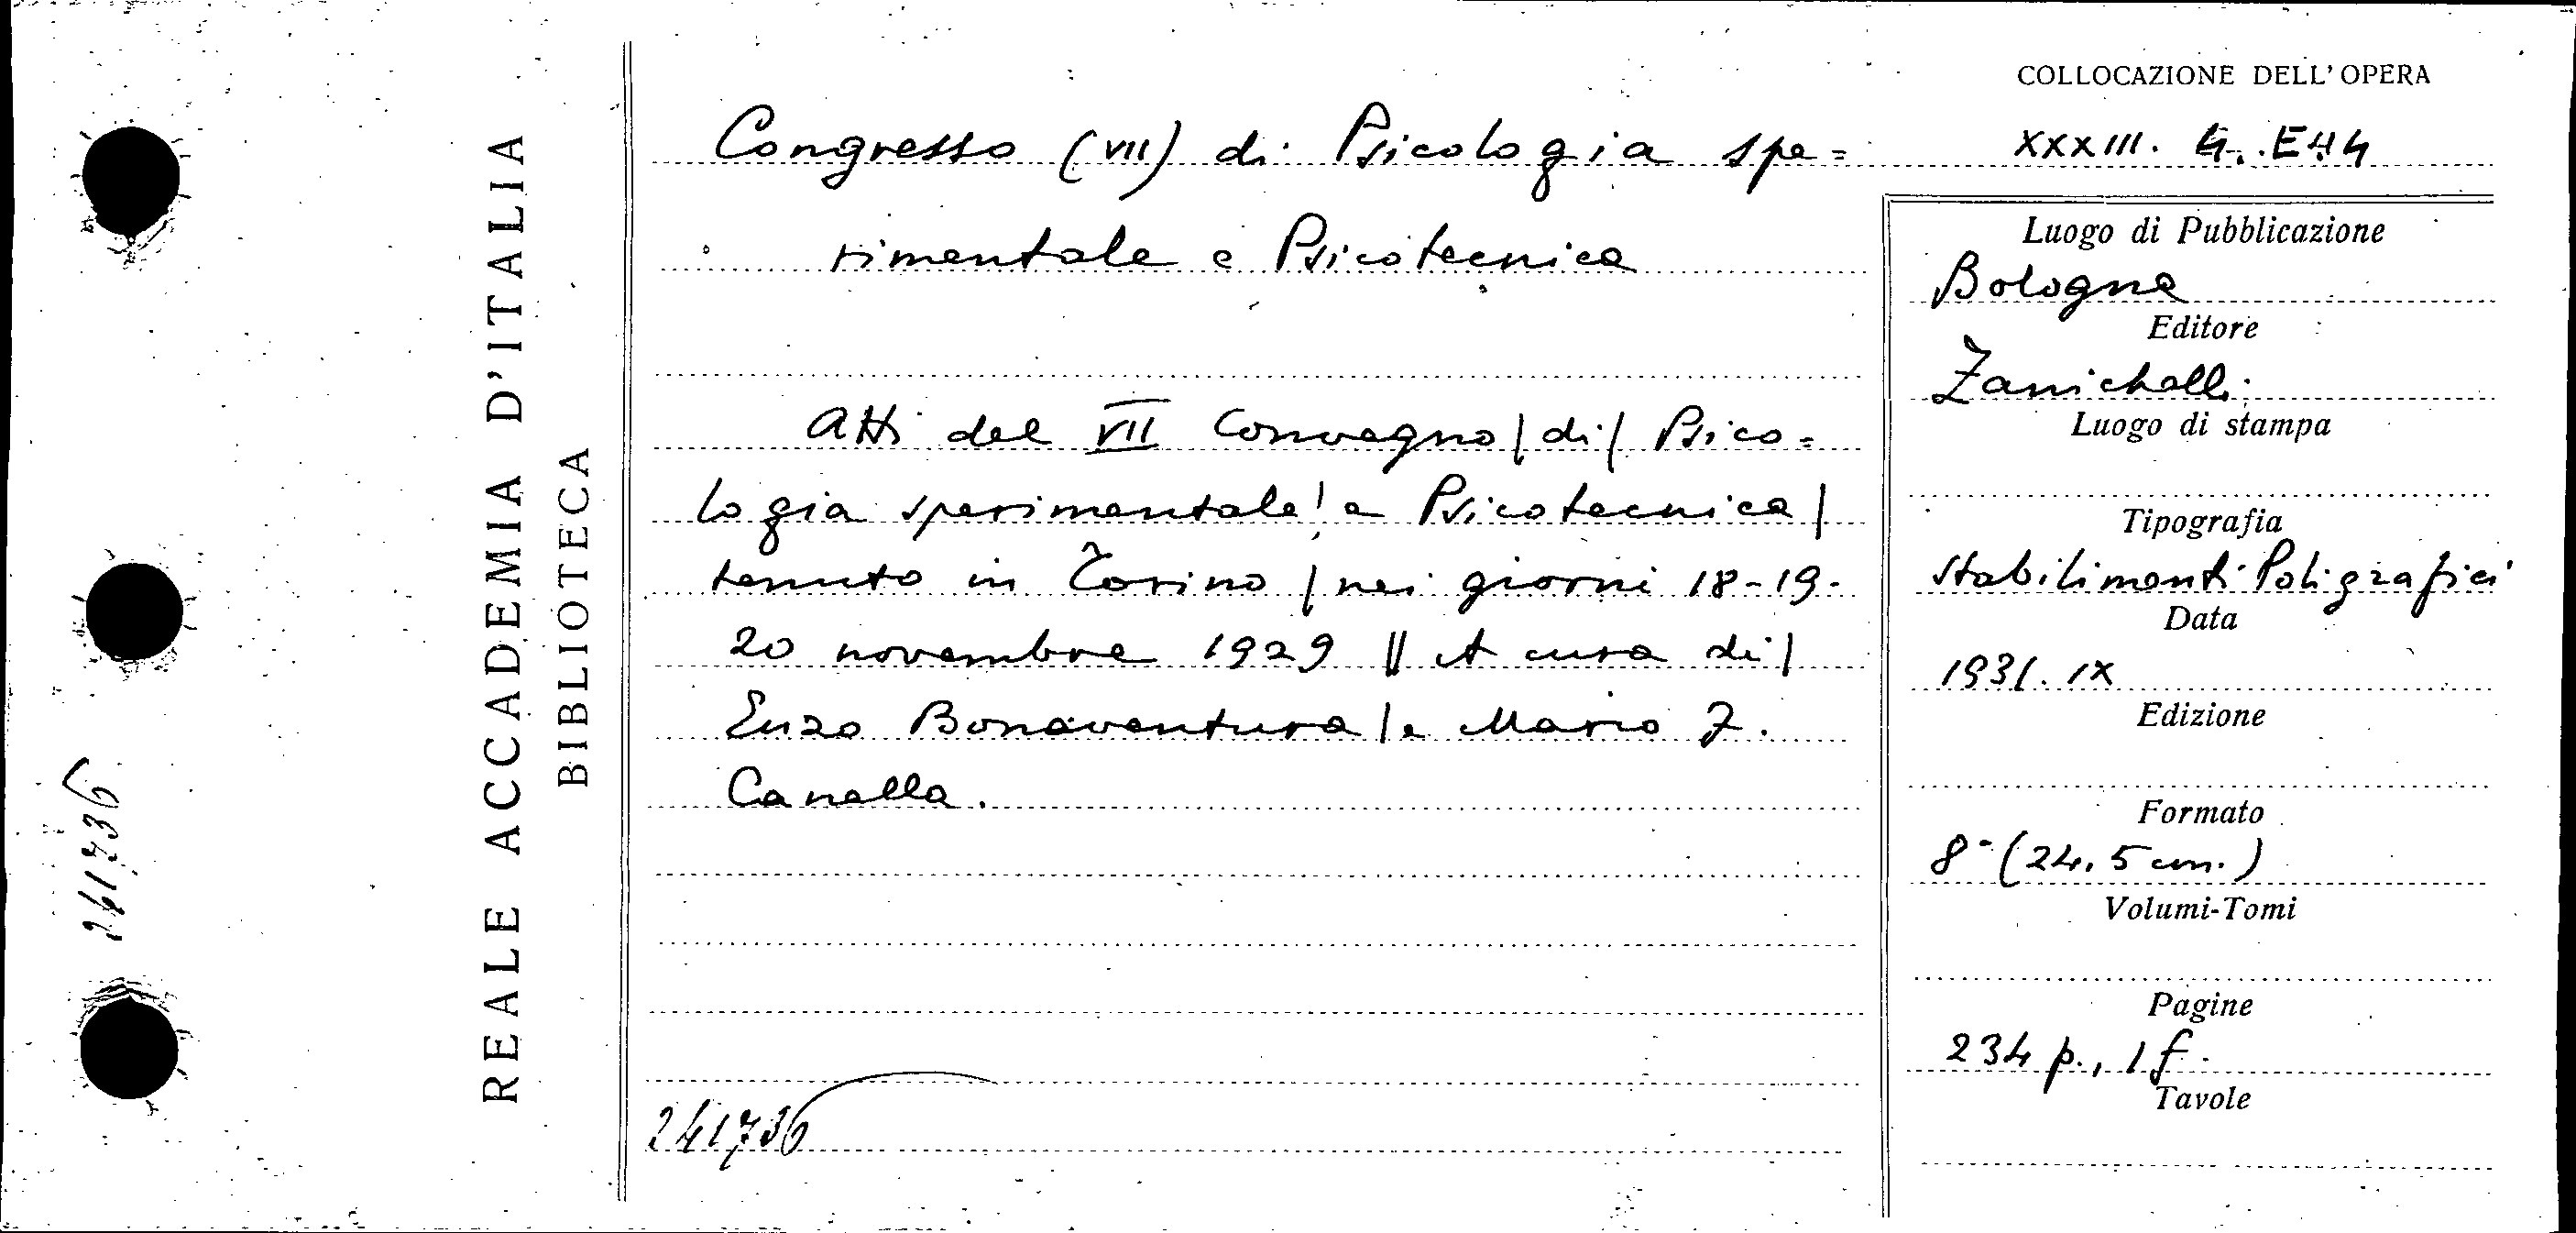 REALE ACCADEMIA D'ITALIA
BIBLIOTECA
241736
COLLOCAZIONE DELL'OPERA
XXXIII. G. E44
Congresso (VII) di Psicologia spe=
rimentale e Psicotecnica
Atti del VII Convegno | di | Psico=
logia sperimentale | e Psicotecnica |
tenuto in Torino | nei giorni 18-19-
20 novembre 1929 || A cura di |
Enzo Bonaventura | e Mario F.
Canella.
241736
Luogo di Pubblicazione
Bologna
Editore
Zanichelli
Luogo di stampa
Tipografia
Stabilimenti Poligrafici
Data
1931. IX
Edizione
Formato
8° (24,5 cm.)
Volumi-Tomi
Pagine
234 p., 1 f.
Tavole